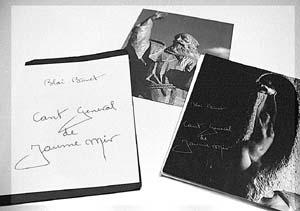 Blai Bonet
Cant General
de
Jaume Mir
Blai Bonet
Cant General
de
Jaume Mir